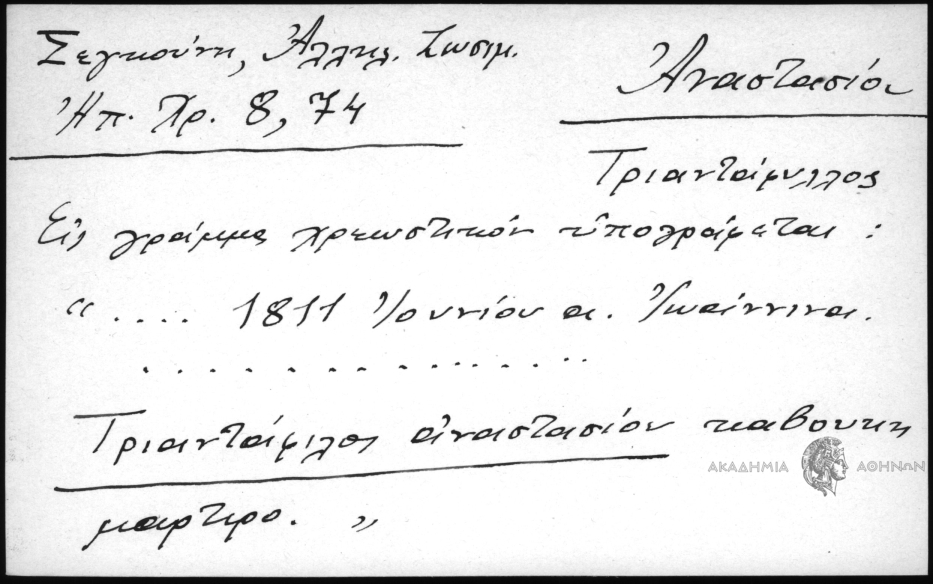 Σεγκούνη, Ἀλληλ. Ζωσιμ.
Ἠπ. Χρ. 8, 74
Ἀναστασίου
Τριαντάφυλλος
Εἰς γράμμα χρεωστικόν ὑπογράφεται :
“ .... 1811 Ἰουνίου α. Ἰωάννινα.
. . . . . . . . . . . . . .
Τριαντάφιλος ἀναστασίου καβουκη
μαρτιρο. „
ΑΚΑΔΗΜΙΑ ΑΘΗΝΩΝ